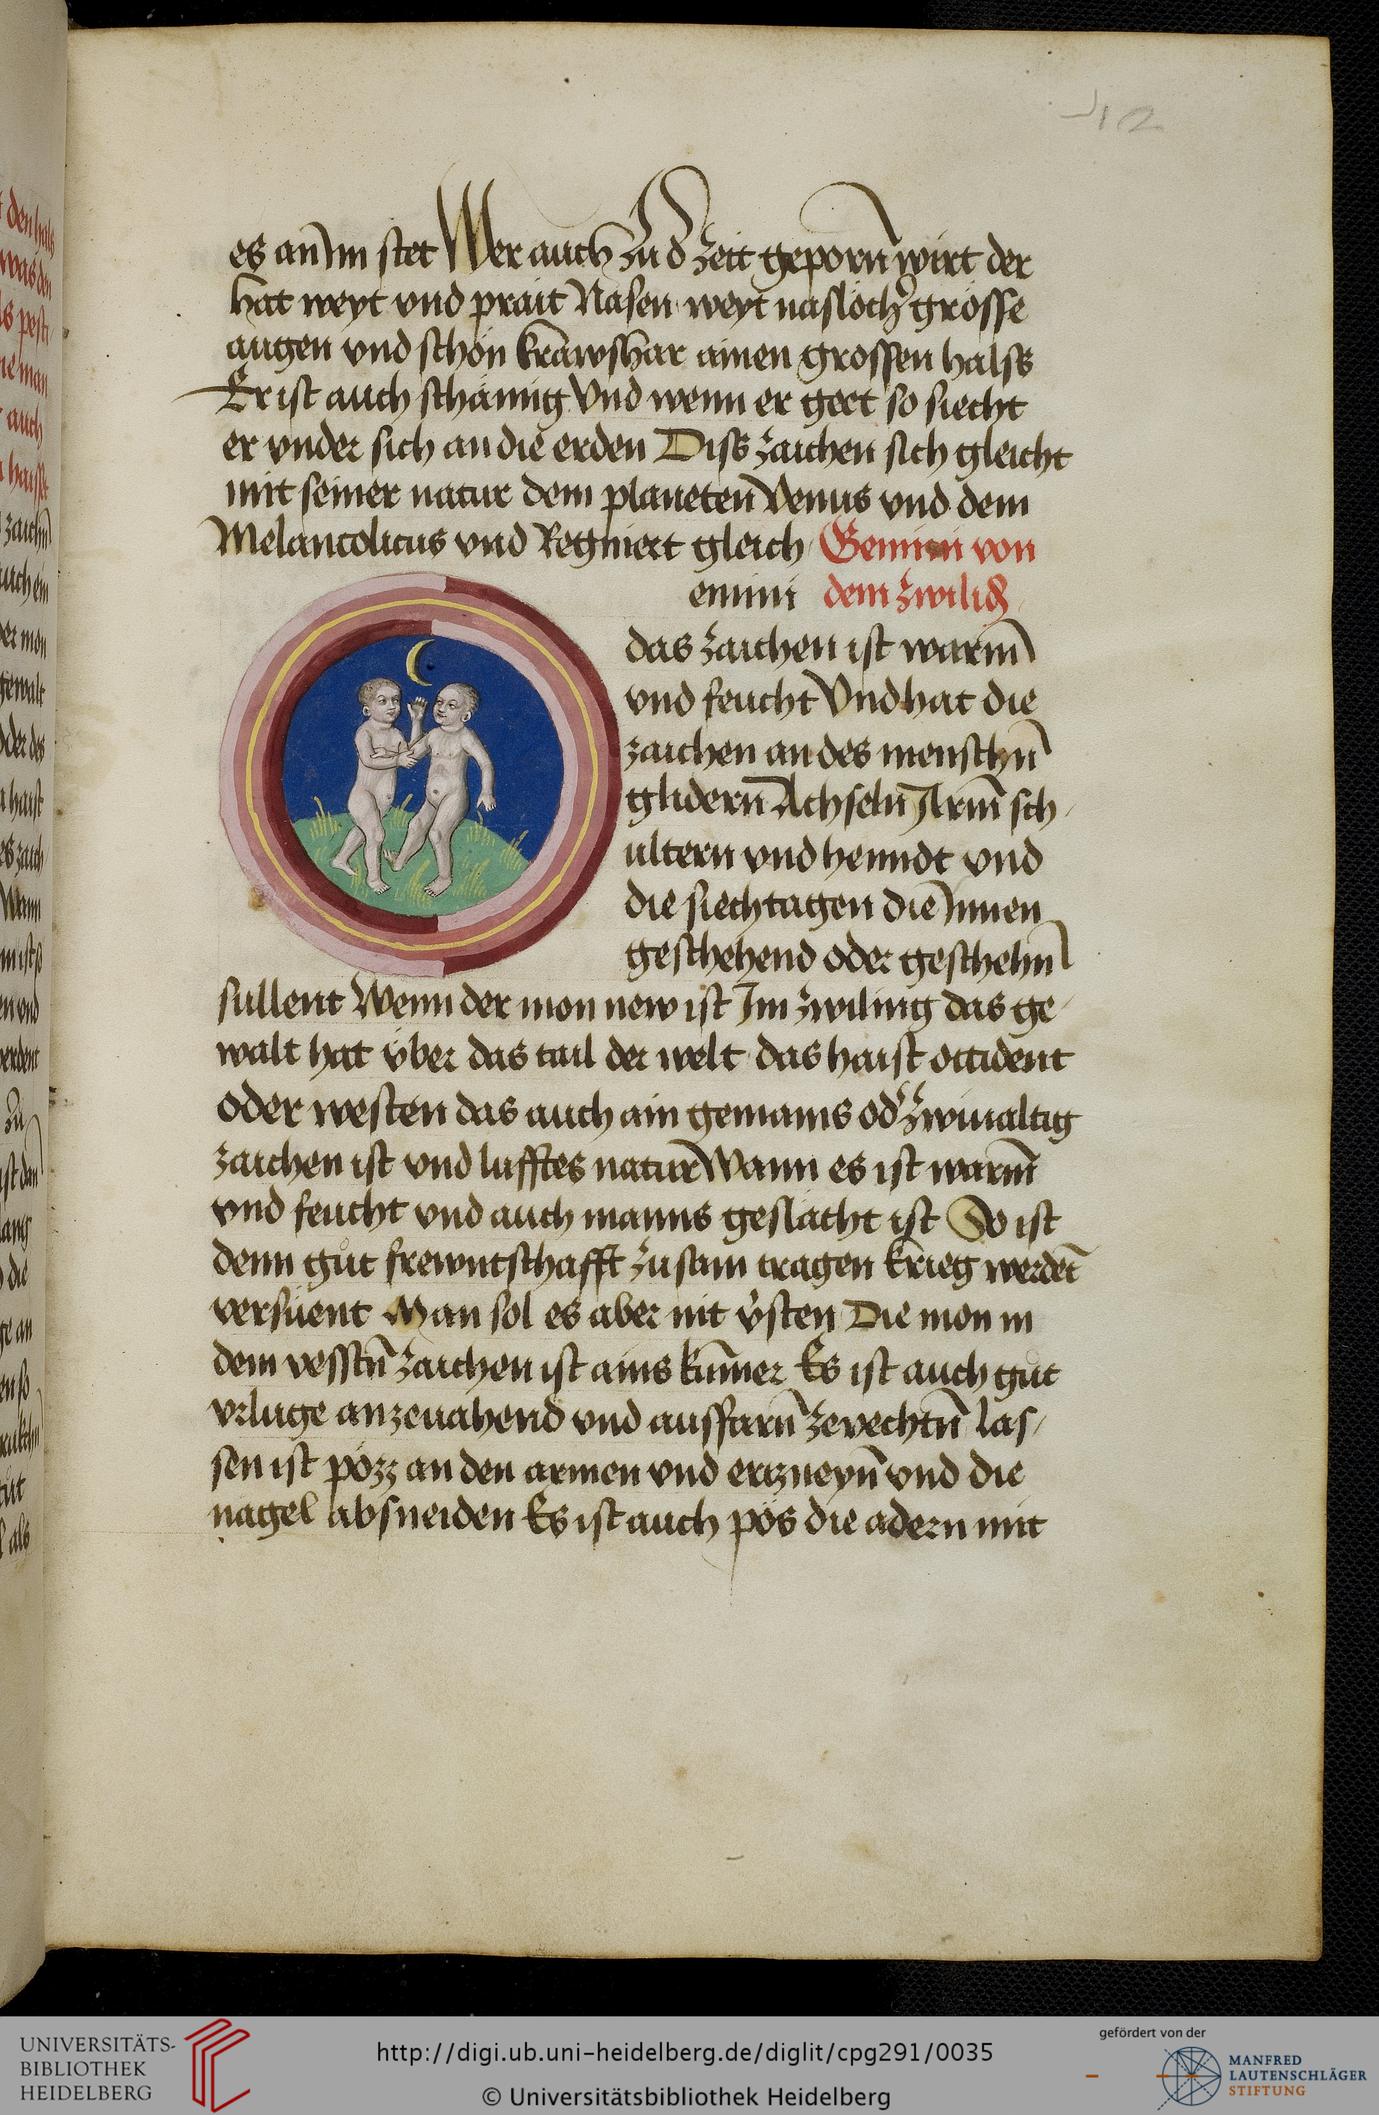 12
es an Im stet Wer auch zu d zeit geporn̄ wirt der
hat weyt vnd prait Nasen weyt nasloch grosse
augen vnd schön krawshar ainen grossen halss
Er ist auch schämig Vnd wenn er geet so siecht
er vnder sich an die erden Diss zaichen sich gleicht
mit seiner natur dem planeten Venus vnd dem
Melancolicus vnd Regniert gleich Gemini von
emini dem zwilig
das zaichen ist warm
vnd feucht Vnd hat die
zaichen an des menschn̄
glidern̄ Achseln̄ Arm̄ sch
ultern vnd henndt vnd
die siechtagen die Innen
geschehend oder geschehn̄
sullent Wenn der mon new ist Im zwiling das ge
walt hat über das tail der welt das haist occident
oder westen das auch ain gemains od zwiualtig
zaichen ist vnd lufftes natur Wann es ist warm̄
vnd feucht vnd auch manns geslächt ist So ist
denn gůt frewntschafft zu sam tragen krieg werdēt
versüent Man sol es aber nit v̈sten Die mon in
dem vesstn̄ zaichen ist ains kum̄er Es ist auch gůt
vrluge anzeuahend vnd aussfarn̄ zevechtn̄ las
sen ist pözz an den armen vnd ertzneyn̄ vnd die
nägel absneiden Es ist auch pös die adern mit
UNIVERSITÄTS-
BIBLIOTHEK
HEIDELBERG
http://digi.ub.uni-heidelberg.de/diglit/cpg291/0035
© Universitätsbibliothek Heidelberg
gefördert von der
MANFRED
LAUTENSCHLÄGER
STIFTUNG